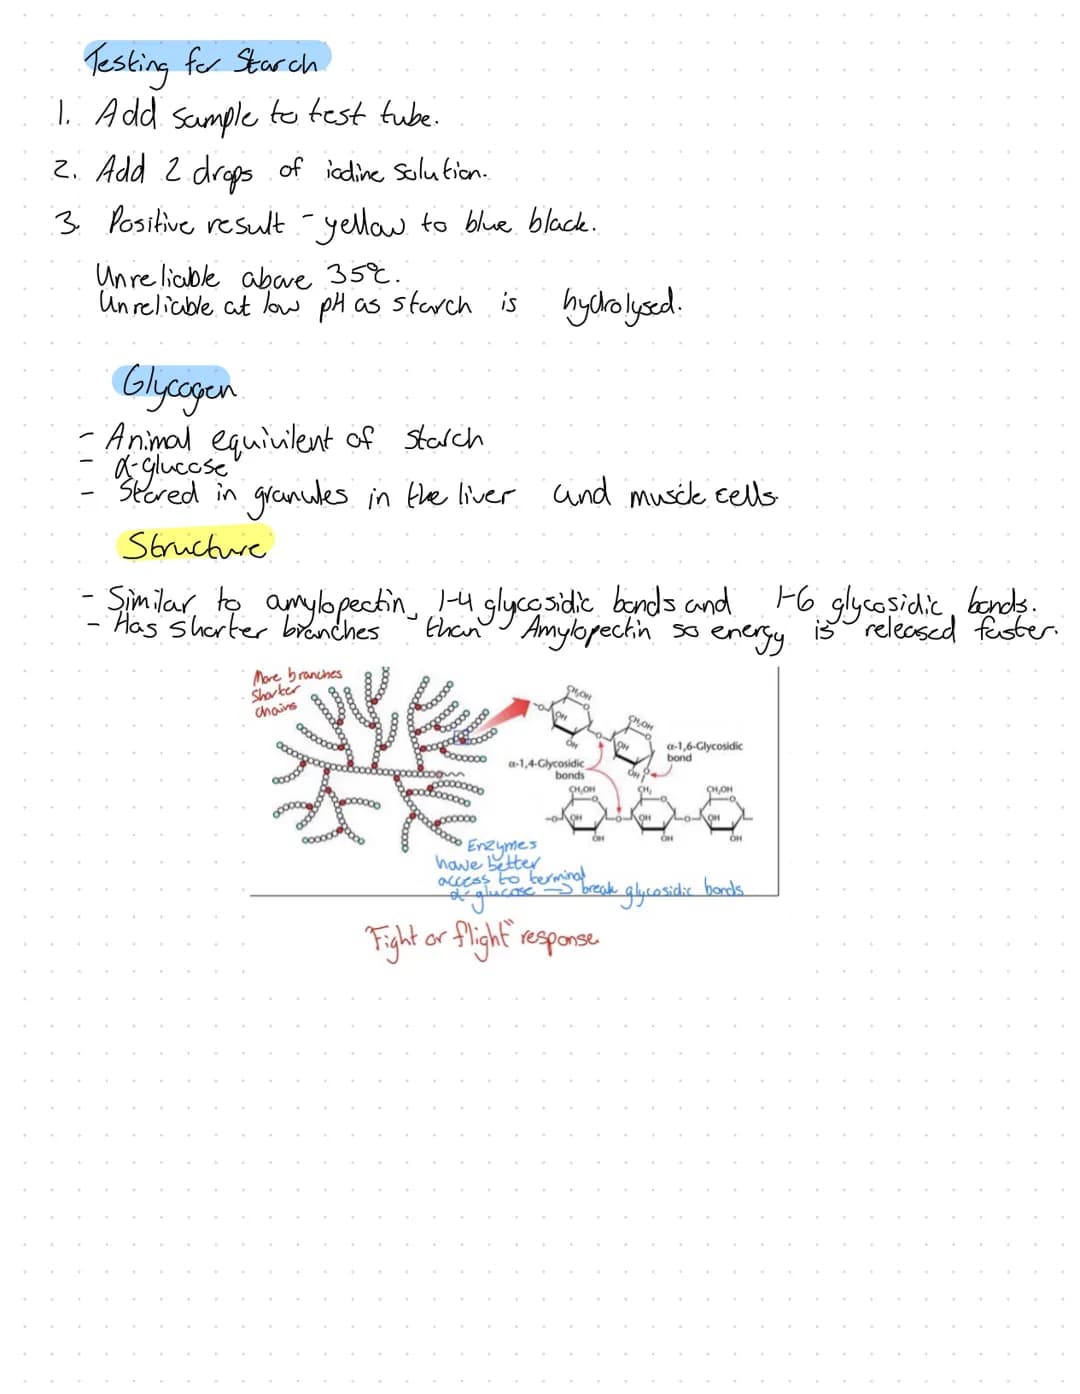 Testing for Starch
1. Add sample to test tube.
2. Add 2 drops of iodine solution.
3. Positive result - yellow to blue black.
Unreliable above 35°C.
Unreliable at low pH as starch is hydrolysed.
Glycogen
- Animal equivilent of starch
- α-glucose
- Stored in granules in the liver and muscle cells.
Structure
- Similar to amylopectin, 1-4 glycosidic bonds and 1-6 glycosidic bonds.
- Has shorter branches than Amylopectin so energy is released faster.
More branches
Shorter
chains
CH₂OH
O
OH
OH
CH₂OH
O
OH
OH
α-1,6-Glycosidic
bond
α-1,4-Glycosidic
bonds
CH₂OH
CH₂
CH₂OH
OH
OH
OH
OH
OH
OH
Enzymes
have better
access to terminal
α-glucose → break glycosidic bonds
"Fight or flight" response